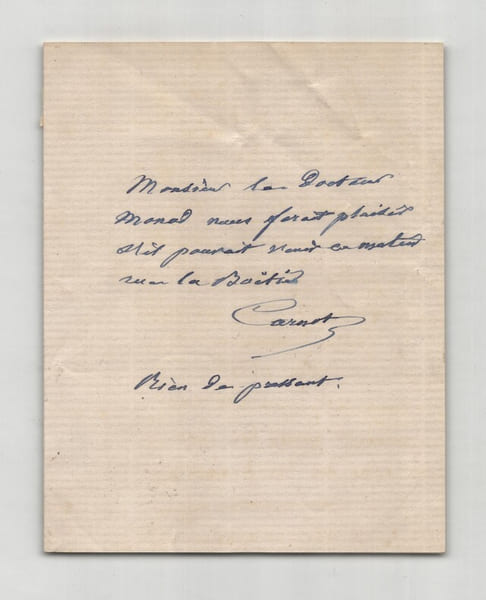 Monsieur le Docteur
Monod nous ferait plaisir
s'il pouvait venir ce matin
rue la Boëtie
Carnot
Rien de pressant.